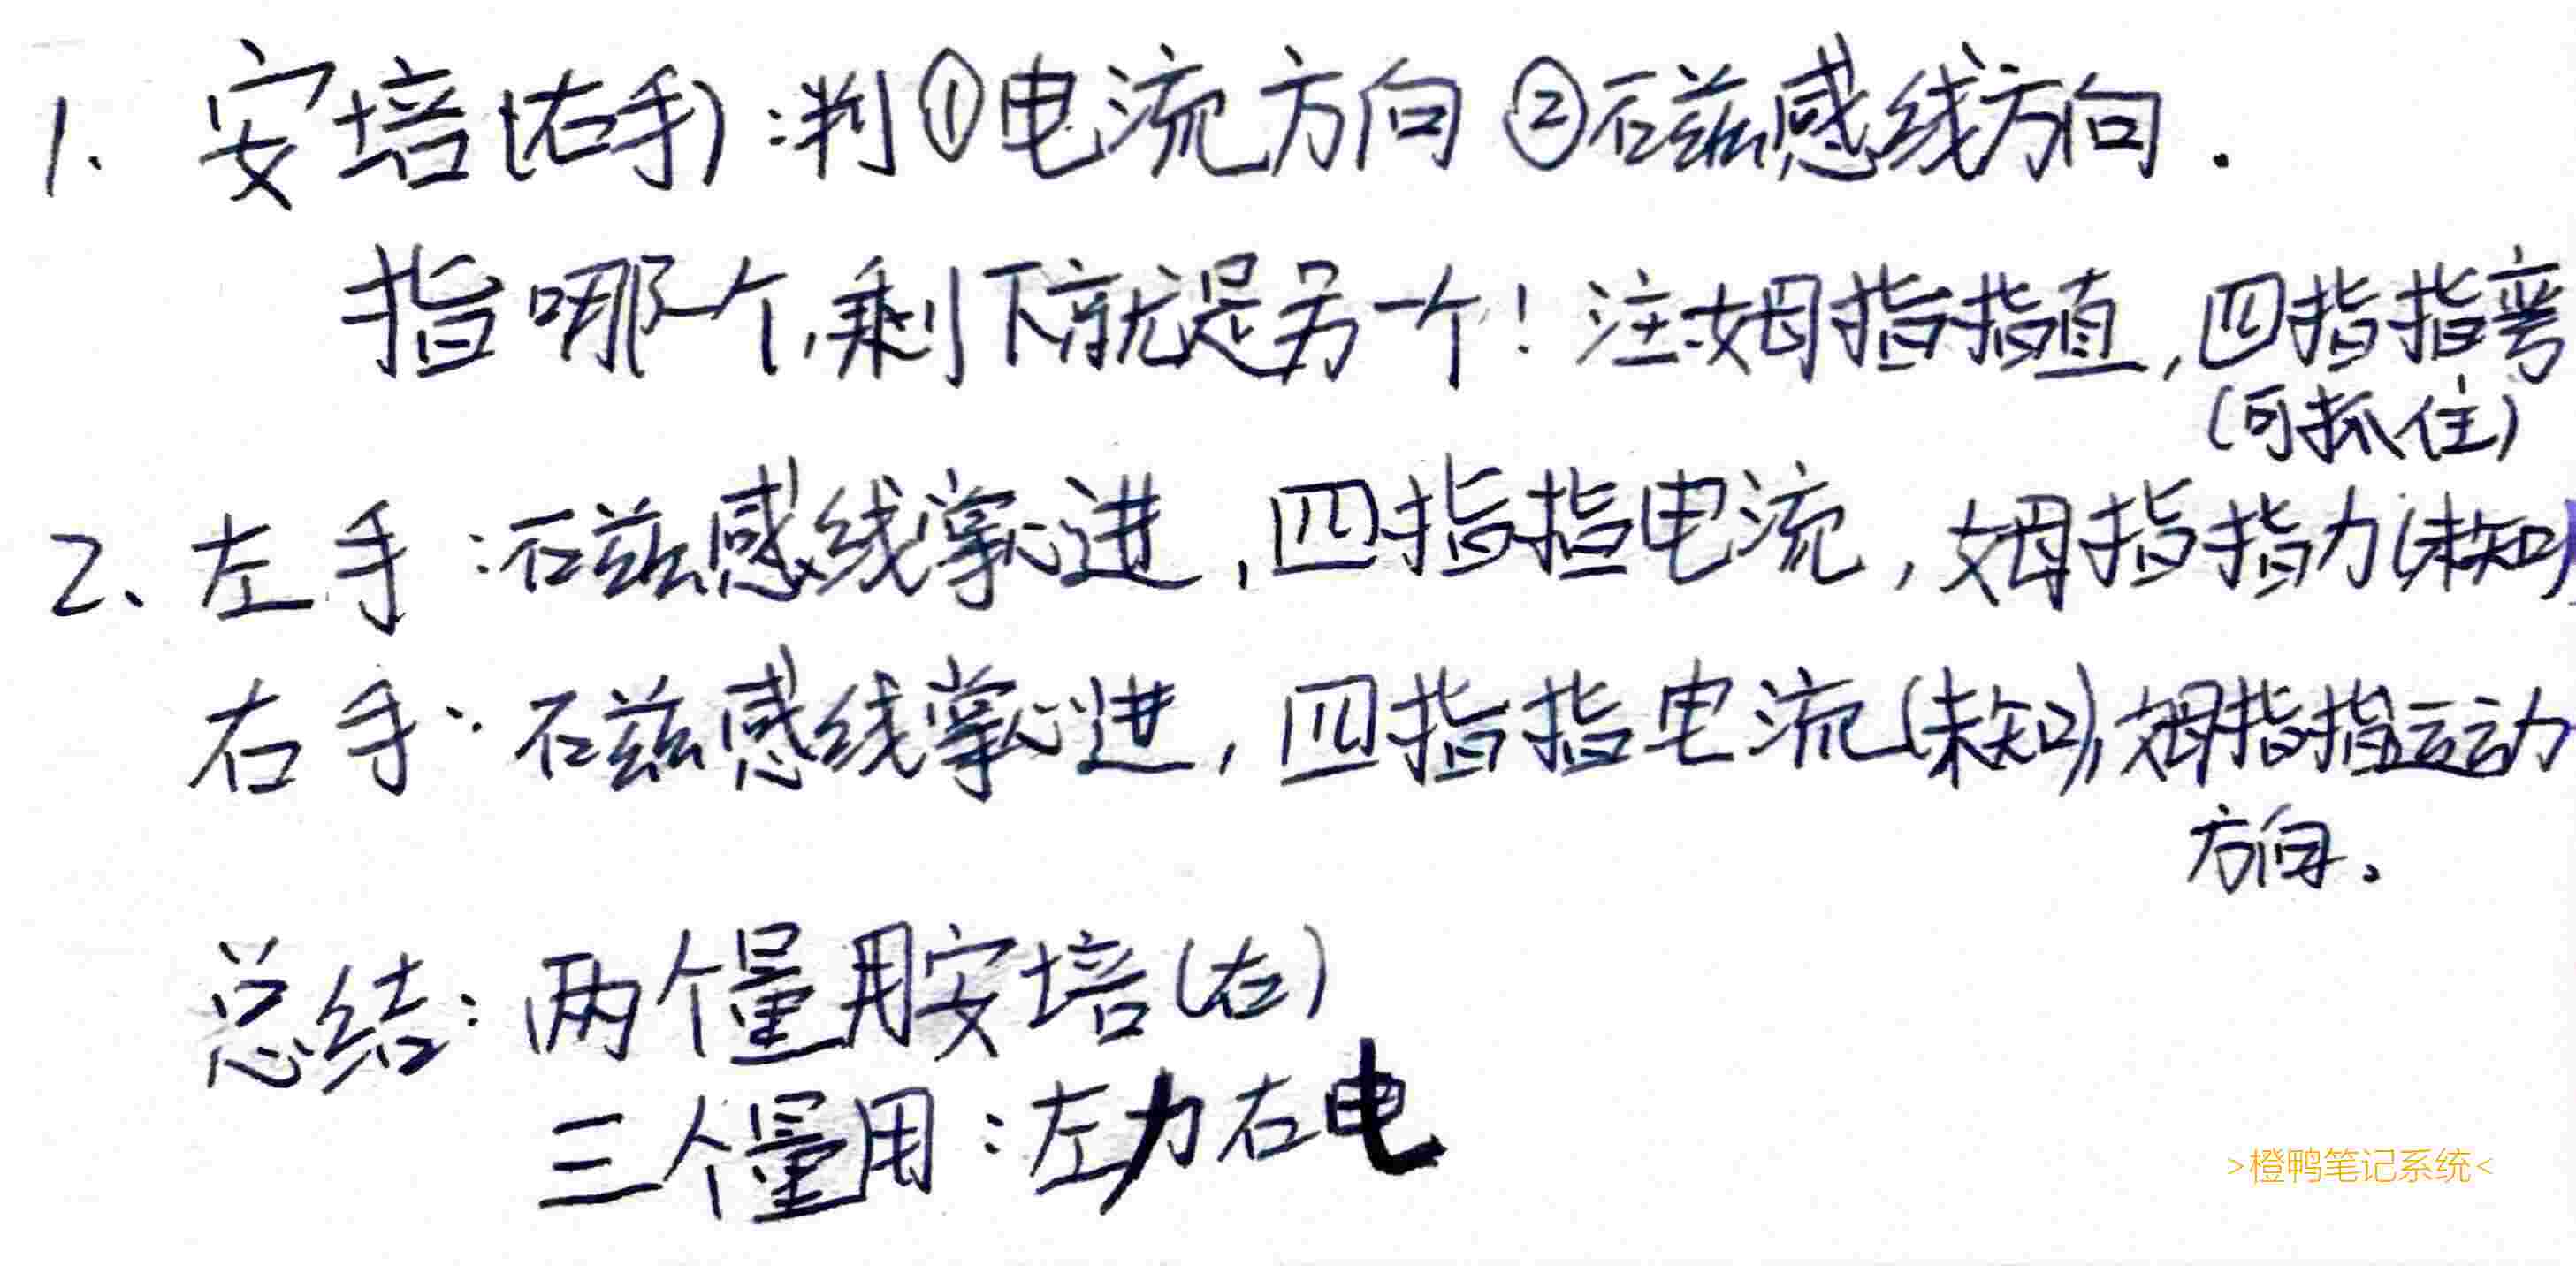 1、安培(右手):判①电流方向②磁感线方向.
指哪一个,剩下就是另一个!注:姆指指直,四指指弯
(可抓住)
2、左手:磁感线掌心进,四指指电流,姆指指力(未知)
右手:磁感线掌心进,四指指电流(未知),姆指指运动
方向。
总结:两个量用安培(右)
三个量用:左力右电
>橙鸭笔记系统<